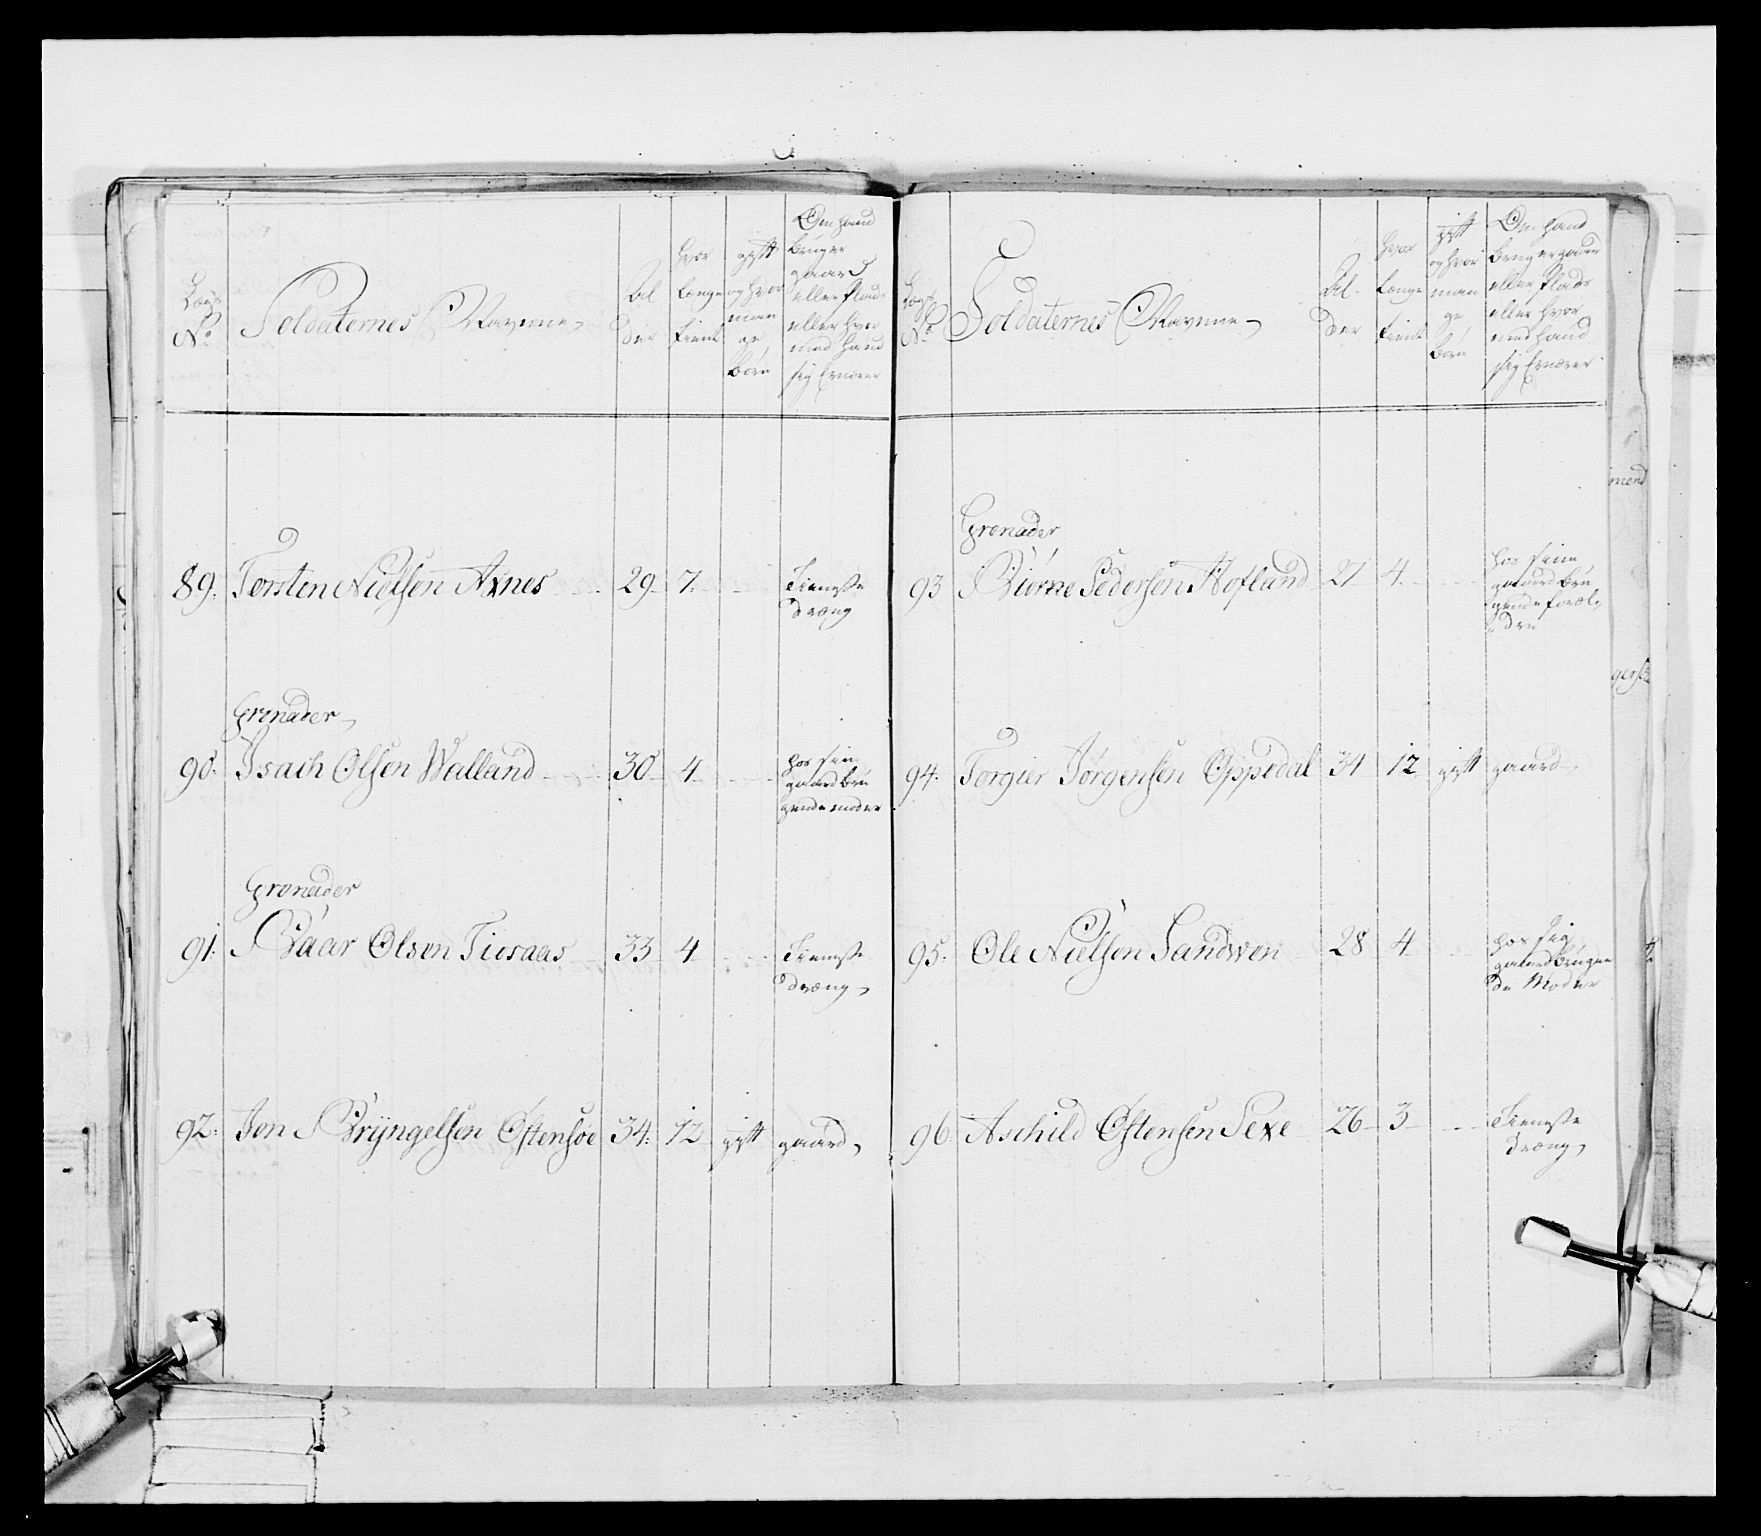 Lægs No
Soldaternes Navne
Al der
hvor længe tient
gift og hvor man ge børn
Om hand bruger gaard eller Plads eller hvor med hand sig Ernærer
89. Torsten Nielsen Axnes 29 7. Tieneste dræng
Grenader
90. Isach Olsen Walland 30 4 hos sin gaard bru gende moder
Grenader
91. Baar Olsen Tiosaas 33 4 Tieneste dræng
92. Jon Bryngelsen Østensøe 34. 12 gift gaard
Lægs No
Soldaternes Navne
Al der
hvor længe tient
gift og hvor man ge børn
Om hand bruger gaard eller Plads eller hvor med hand sig Ernærer
Grenader
93 Biørne Pedersen Hofland 27 4. hos sine gaard bru gende foræl dre
94. Torgier Jørgensen Oppedal 34 12 gift gaard
95. Ole Nielsen Sandwen 28 4 hos sig gaard brugen de Moder
96 Aschild Østensen Sexe 26 3 Tieneste dræng